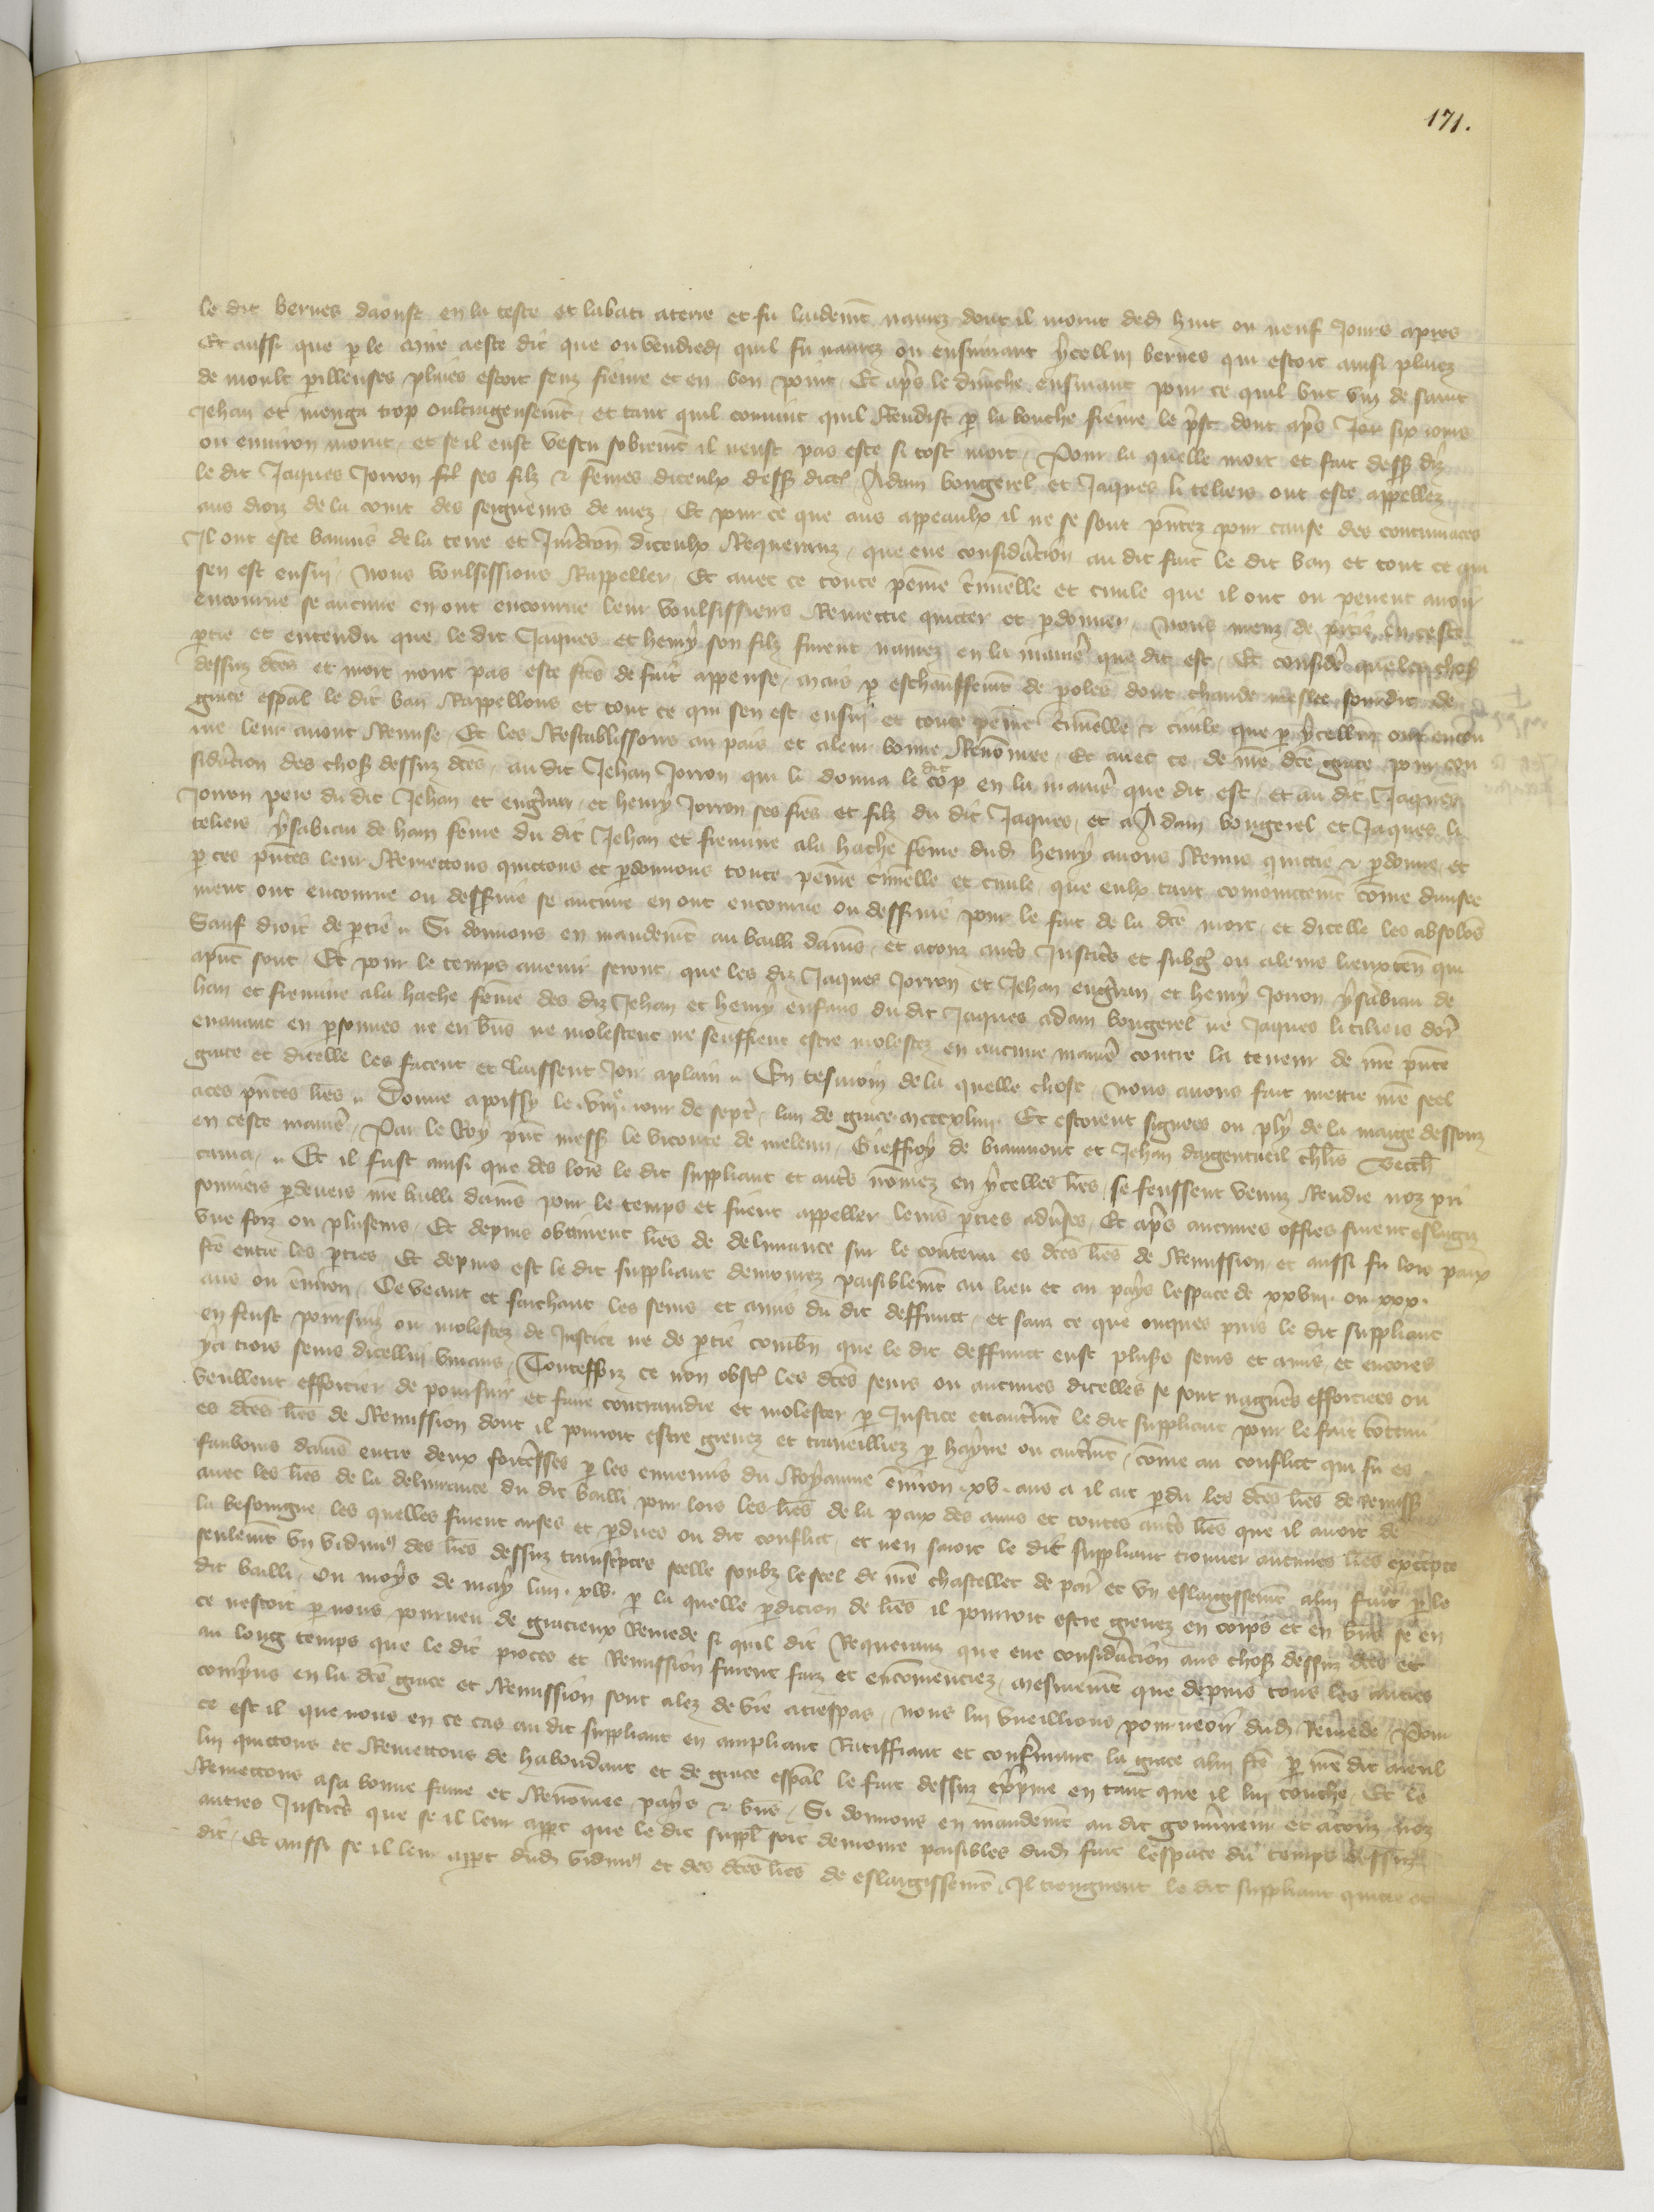 171.
le dit bernes daouse en la teste et labati aterre et fu laidemt navrez dont il morut dedens huit ou neuf Jours apres
Et aussi que p le mire aeste dit que ou vendredi quil fu navrez ou ensuivant ycellui bernes qui estoit ainsi plaiez
de moult pilleuses plaies estoit senz fievre et en bon point Et aps le dimche ensuivant pour ce quil but vin de saint
Jehan et menga trop oultrageusemt et tant quil convint quil Rendist p la bouche fievre le pst dont aps Jor six jours
ou environ morut et se il eust vescu sobremt il neust pas este si tost mort Pour la quelle mort et fait dess diz
le dit Jaques Jorron ses filz & femes diceulx dess dictes Adam bougerel et Jaques li teliers ont este appellez
aus droiz de la court des seigneurs de mez Et pour ce que aus appeaulx il ne se sont pntez pour cause des contumaces
Il ont este bannis de la terre et Juridcon diceulx Requerranz que eue consideracion au dit fait le dit ban et tout ce qui
sen est ensui Nous voulsissions Rappeller Et avec ce toute peine criminelle et civile que il ont ou peuent avoir
encourue se aucune en ont encourue leur voulsissiens Remettre quicter et pdonner Nous meuz de pitie en ceste
ptie et entendu que le dit Jaques et henry son filz furent navrez en la maniere que dit est Et considere que les choses
dessuz dces et mort nont pas este fces de fait appense mais p eschauffemt de poles dont chaude meslee sourdit de
grace espal le dit ban Rappellons et tout ce qui sen est ensui et toute peine criminelle & civile que p ycellui ont encou
rue leur avons Remise Et les Restablissons au pais et aleur bonne Renomee Et avec ce de nre dce grace pour con
sideracion des choses dessuz dces au dit Jehan Jorron qui li donna le dit cop en la maniere que dit est et au dit Jaques
Jorron pere du dit Jehan et engerran et henry Jorron ses freres et filz du dit Jaques et a Adam bougerel et Jaques li
teliers ysabiau de han feme du dit Jehan et fremine ala hache feme dud henry avons Remis quictie & pdonne et
p ces pntes leur Remettons quictons et pdonnons toute peine criminelle et civile que eulx tant conjoinctemt come divisee
ment ont encourue ou desservie se aucune en ont encourue ou desservie pour le fait de la dce mort et dicelle les absolons
Sauf droit de ptie Si donnons en mandemt au bailli damis et atouz autres Justiciers et subgez ou aleurs lieuxten qui
apnt sont Et pour le temps avenir seront que les diz Jaques Jorron et Jehan engerran et henry Jorron ysabiau de
han et fremine ala hache feme des diz Jehan et henry enfans du dit Jaques adam bougerel ne Jaques li tiliers dor
enavant en psonnes ne en biens ne molestent ne seuffrent estre molestez en aucune maniere contre la teneur de nre pnte
grace et dicelle les facent et laissent Joir aplain En tesmoin de la quelle chose Nous avons fait mettre nre seel
aces pntes lres Donne apoissy le viije jour de septe lan de grace mcccxliiij Et estoient signees ou ply de la marge dessouz
en ceste maniere Par le Roy pnt mess le viconte de meleun Gieffroy de biaumont et Jehan dargentueil chlrs Verrch
rama Et il fust ainsi que des lors le dit suppliant et autres nomez en ycelles lres se feussent venuz Rendre noz pri
sonniers pdevers nre bailli damis pour le temps et firent appeller leurs pties adverses Et aps aucunes offres furent eslargiz
une foiz ou pluseurs Et depuis obtinrent lres de delivrance sur le contenu es dces lres de Remission et aussi fu lors paix
fce entre les pties Et depuis est le dit suppliant demourez paisiblemt au lieu et au pays lespace de xxviij ou xxx
ans ou environ Ce veant et saichant les seurs et amis du dit deffunct et sanz ce que onques puis le dit suppliant
en feust poursuiz ou molestez de Justice ne de ptie combn que le dit deffunct eust pluss seurs et amis et encores
y a trois seurs dicellui vivans Toutesfoiz ce non obst les dces seurs ou aucunes dicelles se sont nagueres efforciees ou
veullent efforcier de poursuir et faire contraindre et molester p Justice et autremt le dit suppliant pour le fait contenu
es dces lres de Remission dont il pourroit estre grevez et traveilliez p hayne ou autremt come au conflict qui fu es
fauboins damis entre deux forteresses p les ennemis du Royaume environ xv ans a il ait pdu les dces lres de remiss
avec les lres de la delivrance du dit bailli pour lors les lres de la paix des amis et toutes autres lres que il avoit de
la besoingne les quelles furent arses et pdues ou dit conflict et nen savoit le dit suppliant trouver aucunes lres excepte
seulemt un vidimus des lres dessuz transcriptes seelle soubz le seel de nre chastellet de par et un eslargissemt alui fait p le
dit bailli ou moys de may lan xlv p la quelle pdicion de lres il pourroit estre grevez en corps et en biens se en
ce nestoit p nous pourveu de gracieux Remede si quil dit Requeranz que eue consideracion aus choses dessuz dces et
au long temps que le dit proces et Remission furent faiz et encomenciez mesmemt que depuis tous les autres
compris en la dce grace et Remission sont alez de vie a trespas nous lui vueillions pourveoir dud Remede Pour
ce est il que nous en ce cas au dit suppliant en ampliant Ratiffiant et confirmant la grace alui fce p nre dit aieul
lui quictons et Remettons de habondant et de grace espal le fait dessuz exprime en tant que il lui touche Et le
Remettons asa bonne fame et Renomee pays & biens Si donnons en mandemt au dit gouverneur et atouz noz
autres Justiciers que se il leur appt que le dit suppl soit demoure paisibles dud fait lespace du temps dessuz
dit Et aussi se il leur appt dud vidimus et des dces lres de eslargissemt Il tiengnent le dit suppliant quicte et